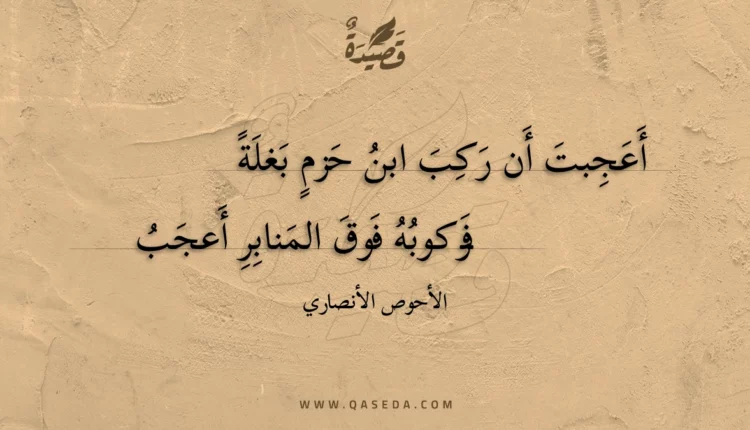 قَصِيدَةٌ
أَعَجِبتَ أَن رَكِبَ ابنُ حَزمٍ بَغلَةً
فَركوبُهُ فَوقَ المَنابِرِ أَعجَبُ
الأحوص الأنصاري
WWW.QASEDA.COM